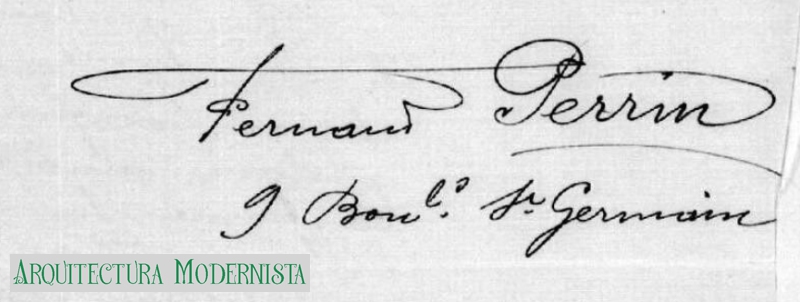 Fernand Perrin
9 Boul.d St Germain
ARQUITECTURA MODERNISTA